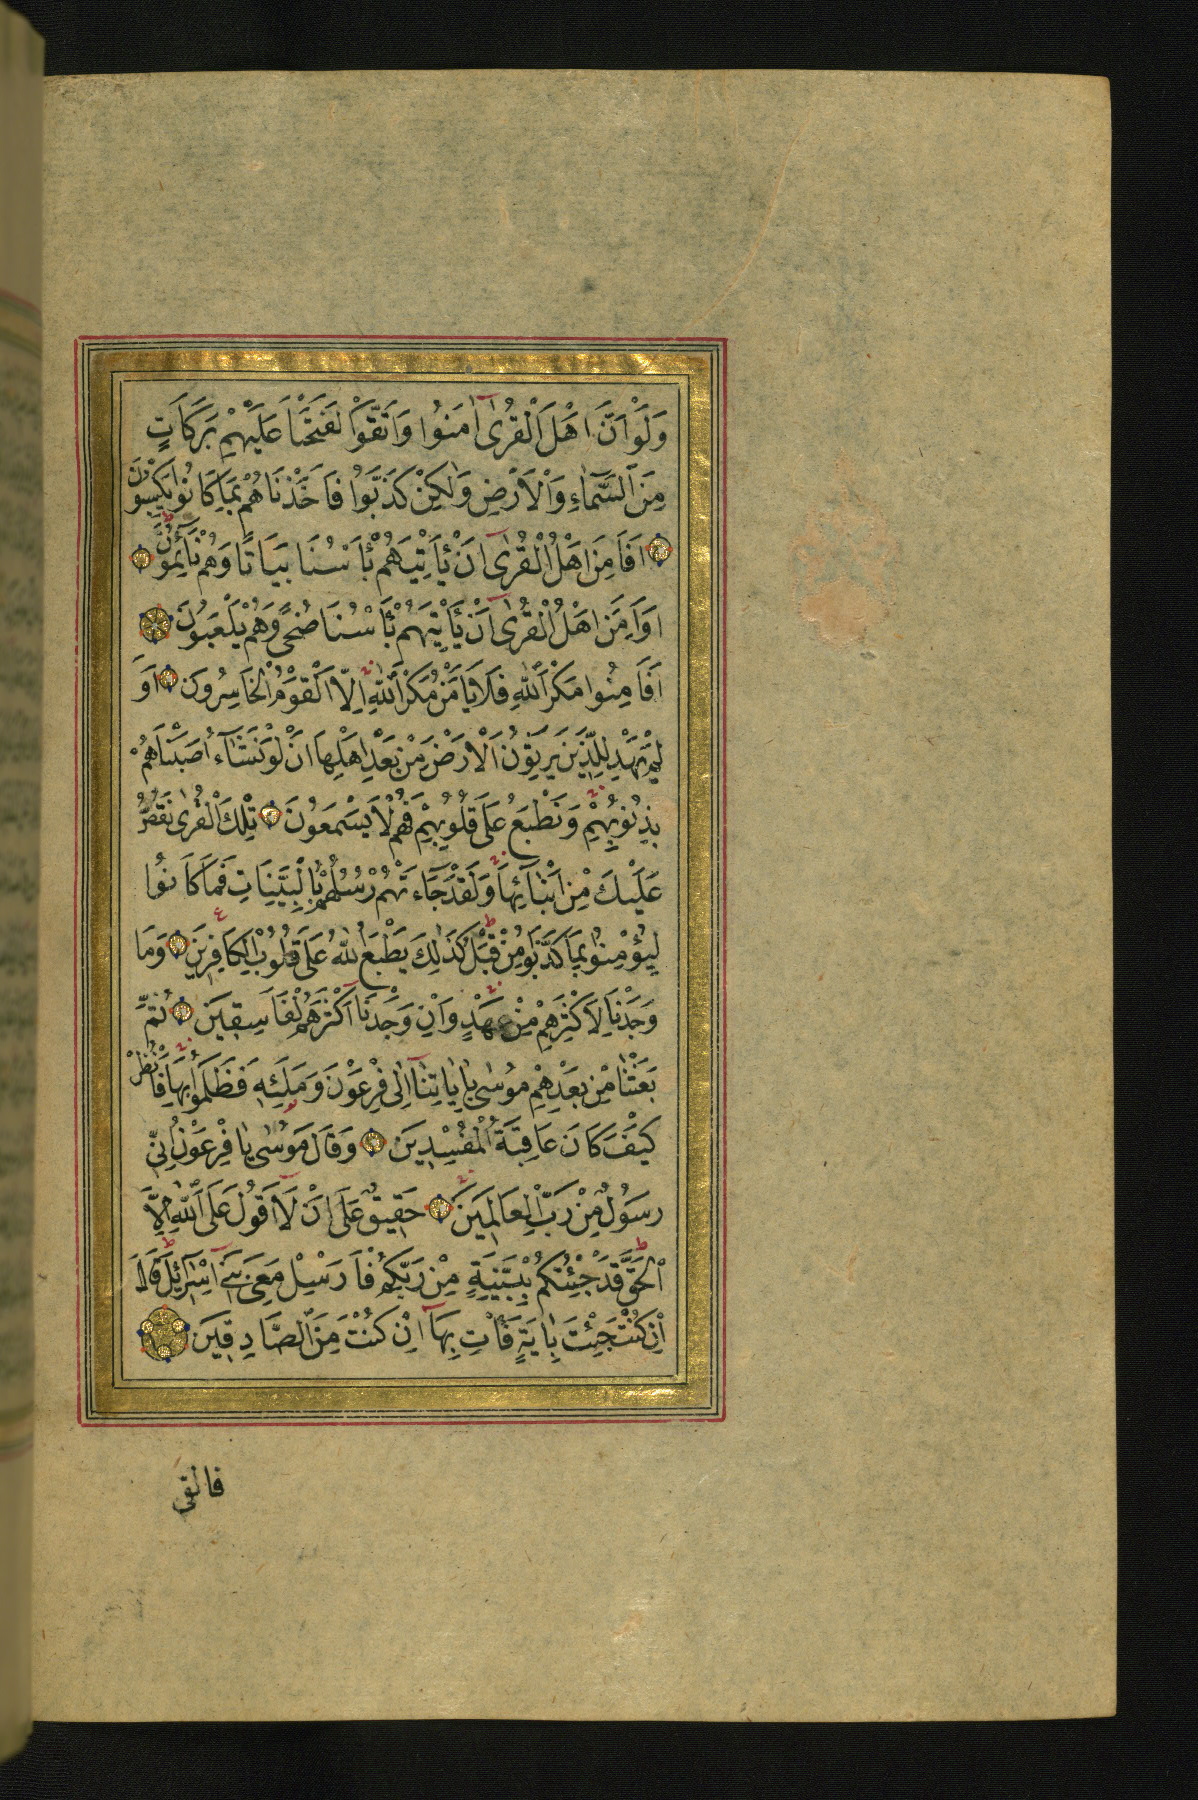 وَلَوْ اَنَّ اَهْلَ الْقُرٰٓى اٰمَنُوا وَاتَّقَوْا لَفَتَحْنَا عَلَيْهِمْ بَرَكَاتٍ
مِنَ السَّمَٓاءِ وَالْاَرْضِ وَلٰكِنْ كَذَّبُوا فَاَخَذْنَاهُمْ بِمَا كَانُوا يَكْسِبُونَ
اَفَاَمِنَ اَهْلُ الْقُرٰٓى اَنْ يَأْتِيَهُمْ بَأْسُنَا بَيَاتًا وَهُمْ نَٓائِمُونَ
اَوَاَمِنَ اَهْلُ الْقُرٰٓى اَنْ يَأْتِيَهُمْ بَأْسُنَا ضُحًى وَهُمْ يَلْعَبُونَ
اَفَاَمِنُوا مَكْرَ اللّٰهِ فَلَا يَأْمَنُ مَكْرَ اللّٰهِ اِلَّا الْقَوْمُ الْخَاسِرُونَ اَوَ
لَمْ يَهْدِ لِلَّذِينَ يَرِثُونَ الْاَرْضَ مِنْ بَعْدِ اَهْلِهَا اَنْ لَوْ نَشَٓاءُ اَصَبْنَاهُمْ
بِذُنُوبِهِمْ وَنَطْبَعُ عَلَى قُلُوبِهِمْ فَهُمْ لَا يَسْمَعُونَ تِلْكَ الْقُرٰى نَقُصُّ
عَلَيْكَ مِنْ اَنْبَٓائِهَا وَلَقَدْ جَٓاءَتْهُمْ رُسُلُهُمْ بِالْبَيِّنَاتِ فَمَا كَانُوا
لِيُؤْمِنُوا بِمَا كَذَّبُوا مِنْ قَبْلُ كَذٰلِكَ يَطْبَعُ اللّٰهُ عَلَى قُلُوبِ الْكَافِرِينَ وَمَا
وَجَدْنَا لِاَكْثَرِهِمْ مِنْ عَهْدٍ وَاِنْ وَجَدْنَٓا اَكْثَرَهُمْ لَفَاسِقِينَ ثُمَّ
بَعَثْنَا مِنْ بَعْدِهِمْ مُوسٰى بِاٰيَاتِنَٓا اِلٰى فِرْعَوْنَ وَمَلَئِهِ فَظَلَمُوا بِهَا فَانْظُرْ
كَيْفَ كَانَ عَاقِبَةُ الْمُفْسِدِينَ وَقَالَ مُوسٰى يَا فِرْعَوْنُ اِنِّي
رَسُولٌ مِنْ رَبِّ الْعَالَمِينَ حَقِيقٌ عَلَى اَنْ لَٓا اَقُولَ عَلَى اللّٰهِ اِلَّا
الْحَقَّ قَدْ جِئْتُكُمْ بِبَيِّنَةٍ مِنْ رَبِّكُمْ فَاَرْسِلْ مَعِيَ بَنِٓي اِسْرَٓائِلَ قَالَ
اِنْ كُنْتَ جِئْتَ بِاٰيَةٍ فَأْتِ بِهَٓا اِنْ كُنْتَ مِنَ الصَّادِقِينَ
فالقى